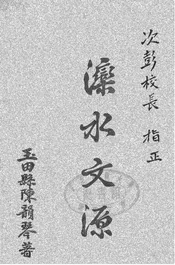 次彭校長 指正
濼水文源
玉田縣陳韻琴著